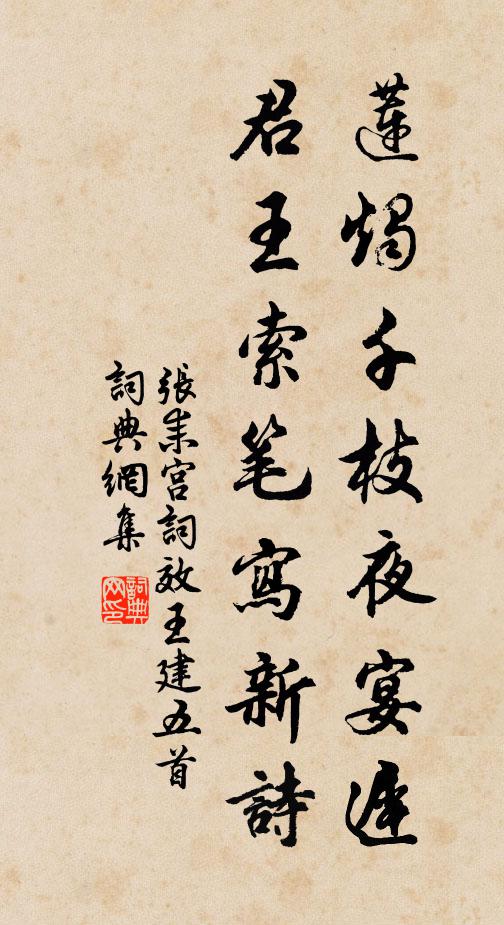 蓮燭千枝夜宴遲
君王索笔寫新詩
張耒宮詞效王建五首
詞典網集
詞典网印